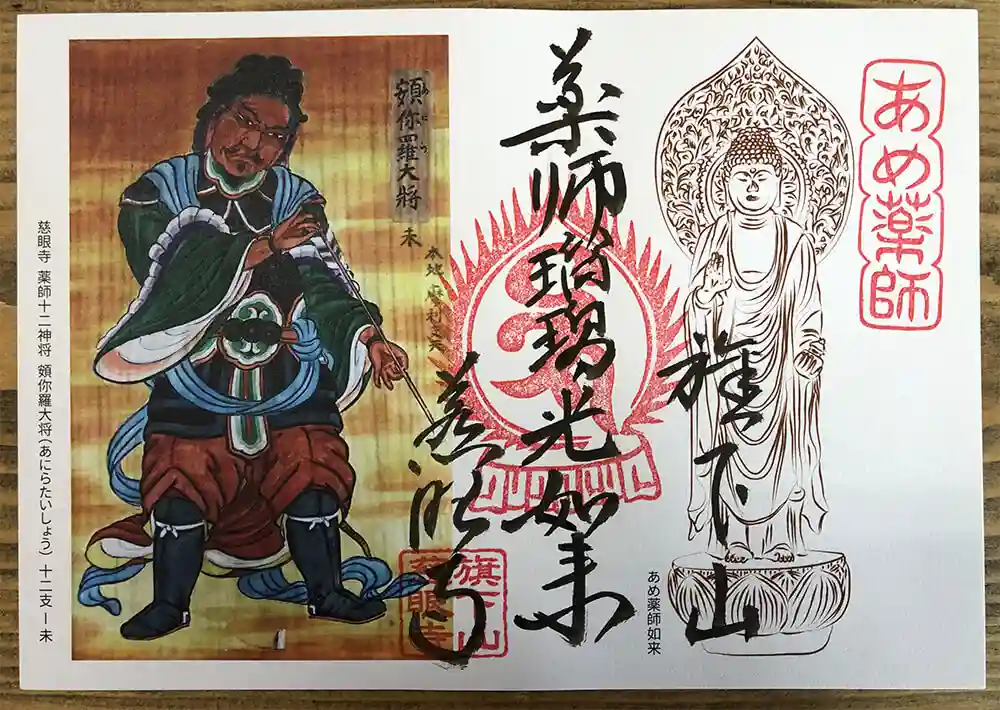 あめ薬師
旗下山
薬師瑠璃光如来
慈眼寺
旗下山
慈眼寺
あめ薬師如来
頞你羅大将 未
あにら
本地 摩利支天
慈眼寺 薬師十二神将 頞你羅大将(あにらたいしょう) 十二支 ー 未